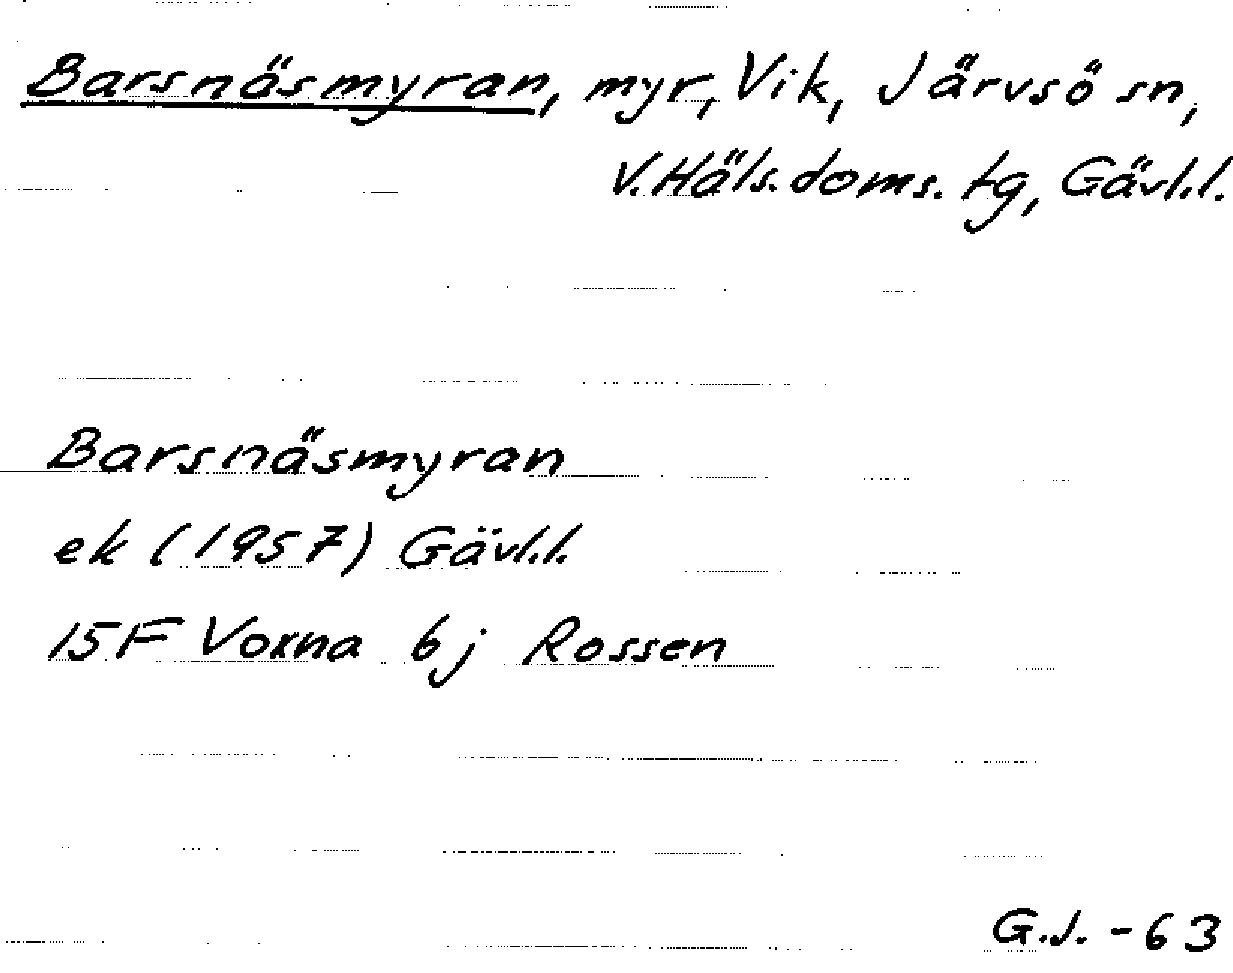 Barsnäsmyran, myr, Vik, Järvsö sn,
V. Häls. doms. tg, Gävl.l.
Barsnäsmyran
ek (1957) Gävl.l.
15F Voxna 6j Rossen
G.J. - 63